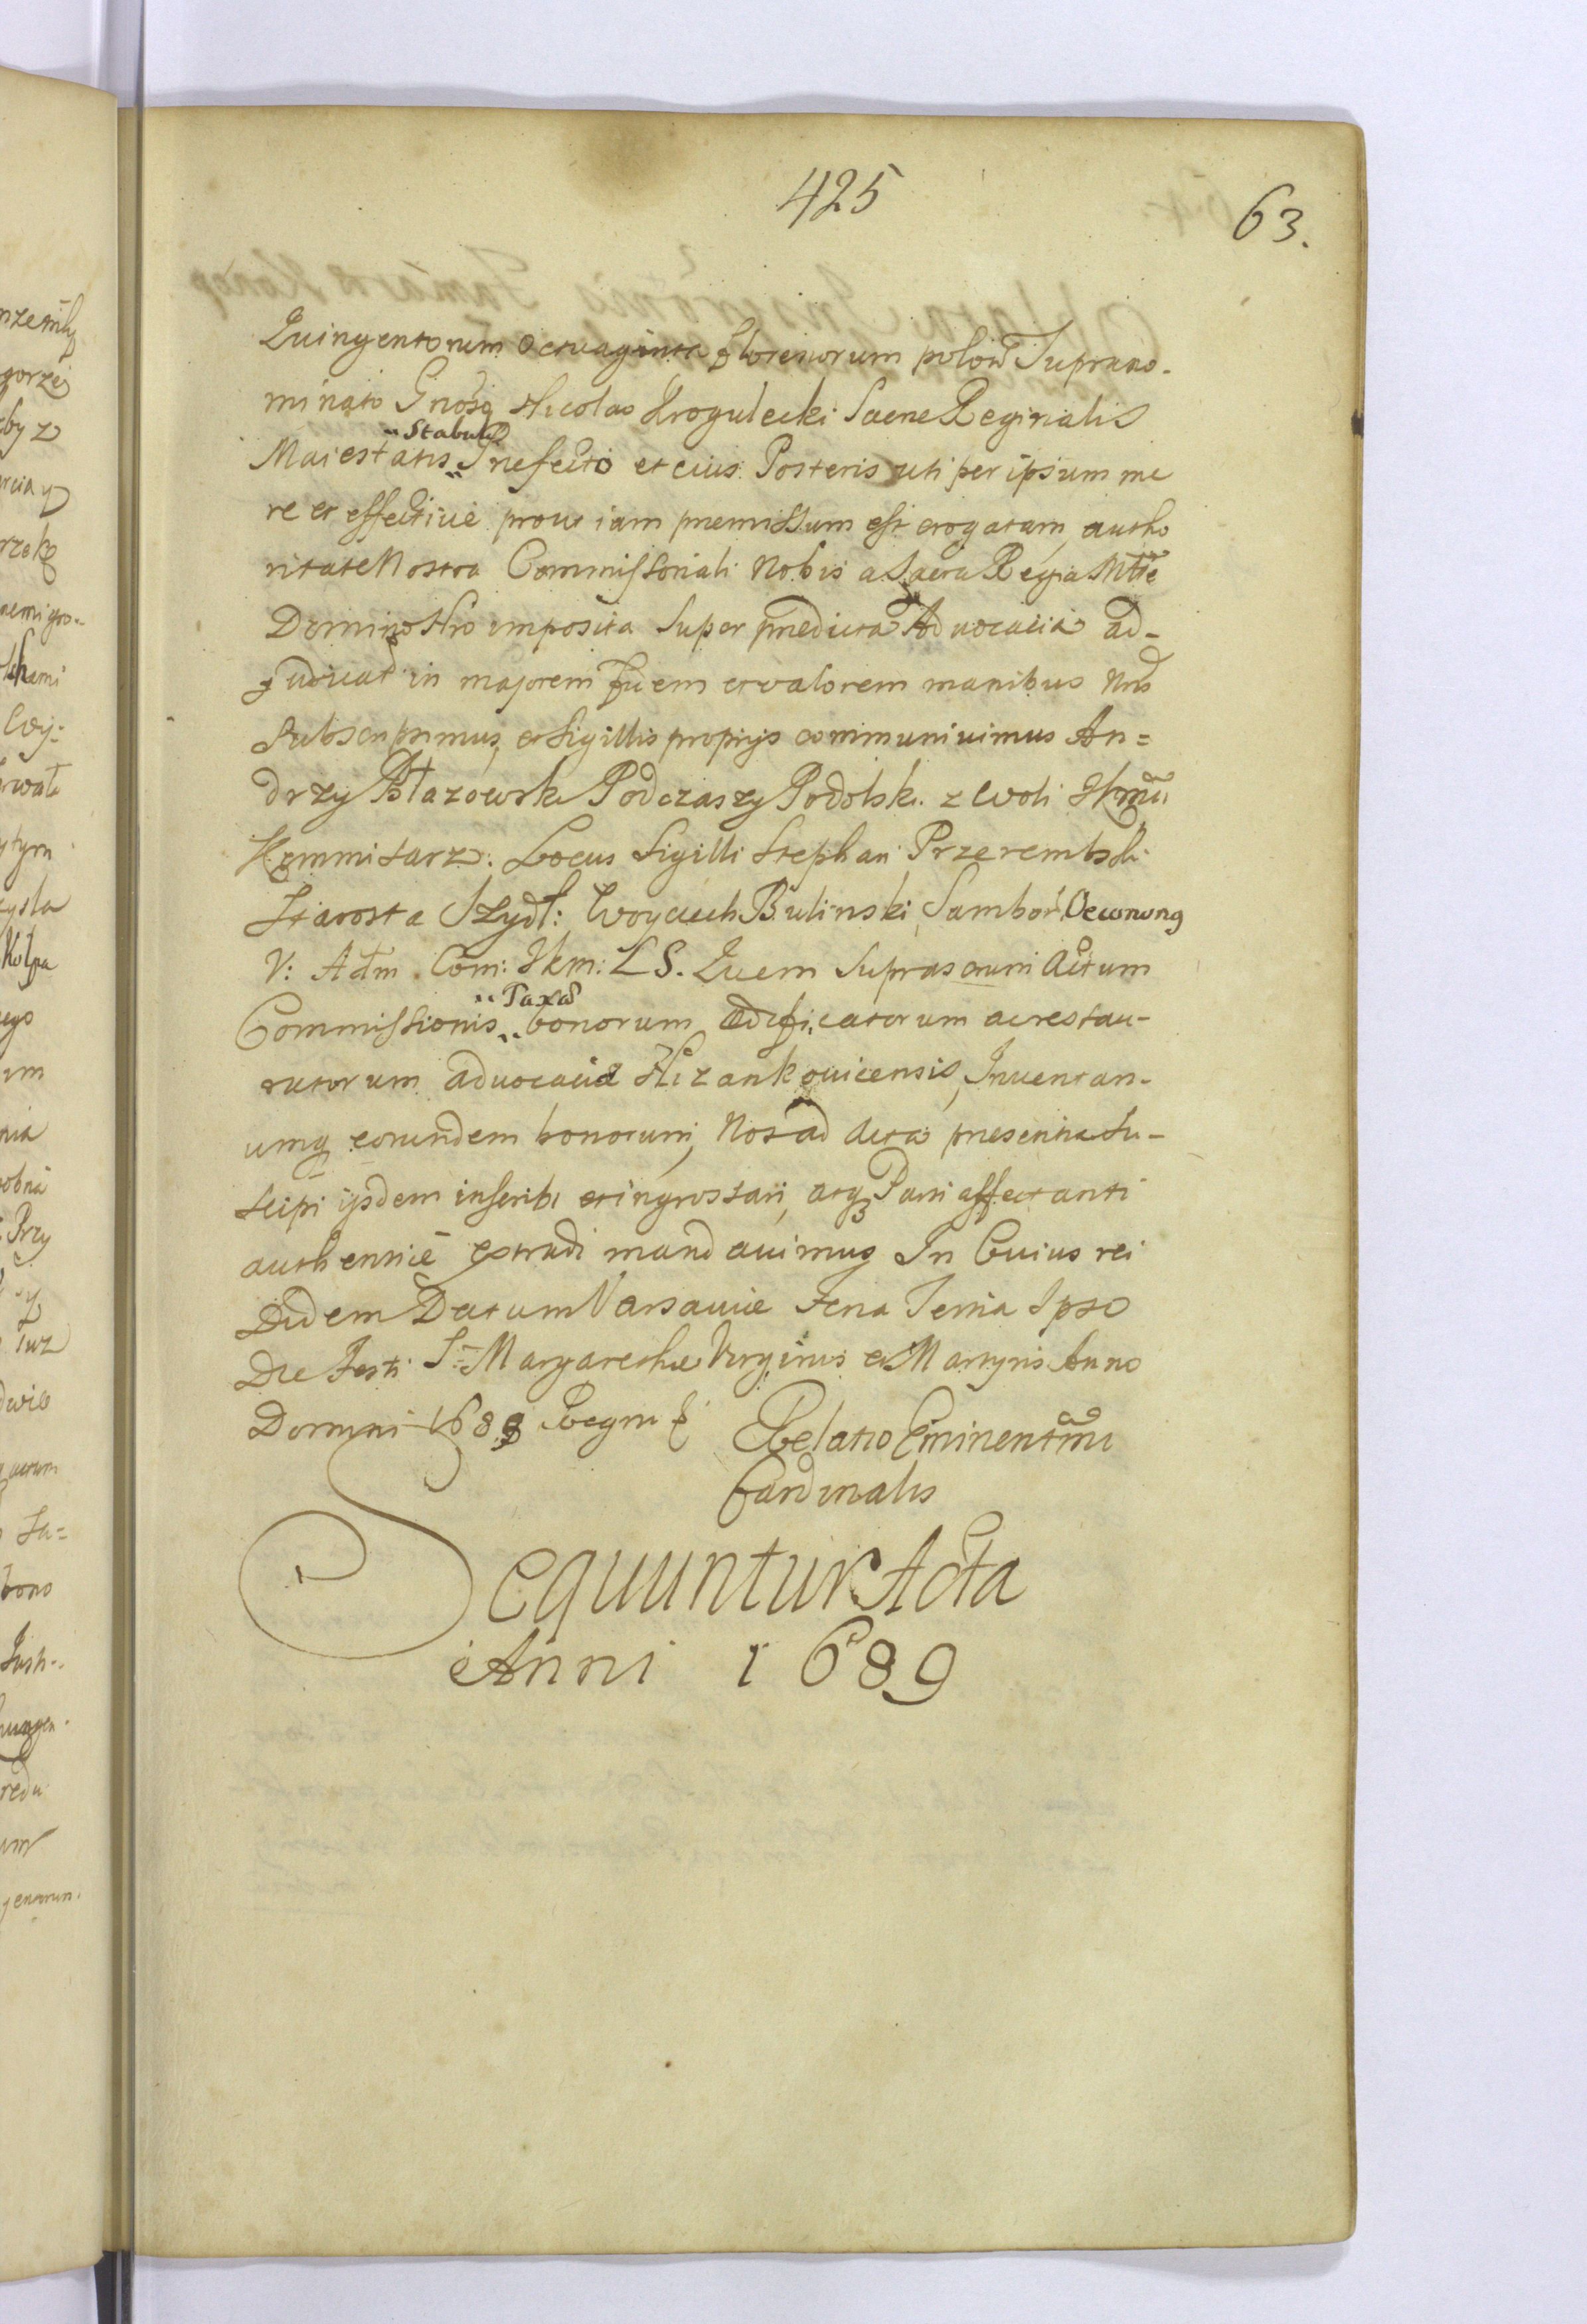 425
63.
Quingentorum Octuaginta florenorum polon̄ Suprano-
minato Gnōso Nicolao Krogulecki Sacrae Reginalis
Maiestatis Stabuli Praefecto et eius Posteris uti per ipsum me
re et effective prout iam praemissum est erogatam, autho
ritate Nostra Commissoriali Nobis a Sacra Regia Mtte
Domino Nro imposita super praedicta Advocatia ad-
judicat in majorem fidem et valorem manibus Nris
subscripsimus, et Sigillis proprijs communivimus An=
drzy Błazowski Podczaszy Podolski z woli JKmci
Kommisarz: Locus Sigilli Stephan Przerembski
Starosta Szydł: Woyciech Bulinski Sambor: Oeconomy
V: Adm. Com: JKm: LS. Quem suprascriptum Actum
Commissionis Taxae bonorum aedificatorum ac restau-
ratorum advocatiae Nizankovicensis, Inventari-
umq eorundem bonorum, Nos ad Acta praesentia su-
scipi ijsdem inscribi et ingrossari, atq Parti affectanti
authentice extradi mandavimus In Cuius rei
fidem Datum Varsaviae Feria Tertia Ipso
Die Festi S: Margarethae Virginis et Martyris Anno
Domini 1688 Regni &
Relatio Eminentmi
Cardinalis
Sequuntur Acta
Anni 1689